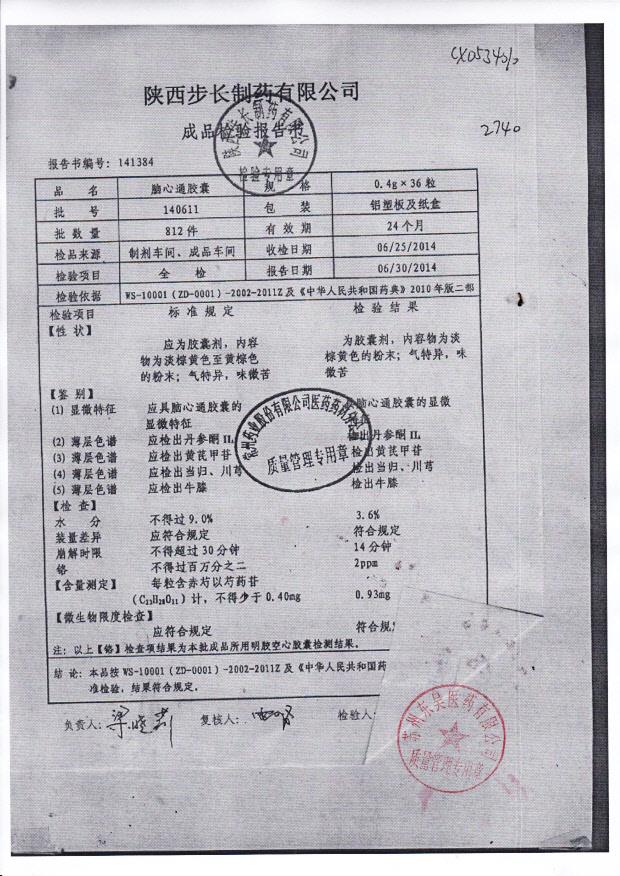 2740
陕西步长制药有限公司
成品检验报告书
报告书编号：141384
品 名 脑心通胶囊 规 格 0.4g×36粒
批 号 140611 包 装 铝塑板及纸盒
批数量 812件 有效期 24个月
检品来源 制剂车间、成品车间 收检日期 06/25/2014
检验项目 全 检 报告日期 06/30/2014
检验依据 WS-10001（ZD-0001）-2002-2011Z及《中华人民共和国药典》2010年版二部
检验项目 标准规定 检验结果
【性 状】
应为胶囊剂，内容 为胶囊剂，内容物为淡
物为淡棕黄色至黄棕色 棕黄色的粉末；气特异，味
的粉末；气特异，味微苦 微苦
【鉴 别】
(1) 显微特征 应具脑心通胶囊的 脑心通胶囊的显微
显微特征
(2) 薄层色谱 应检出丹参酮IIA 检出丹参酮IIA
(3) 薄层色谱 应检出黄芪甲苷 检出黄芪甲苷
(4) 薄层色谱 应检出当归、川芎 检出当归、川芎
(5) 薄层色谱 应检出牛膝 检出牛膝
【检 查】
水 分 不得过9.0% 3.6%
装量差异 应符合规定 符合规定
崩解时限 不得超过30分钟 14分钟
铬 不得过百万分之二 2ppm
【含量测定】 每粒含赤芍以芍药苷
(C23H28O11) 计，不得少于0.40mg 0.93mg
【微生物限度检查】
应符合规定 符合规
注：以上【铬】检查项结果为本批成品所用明胶空心胶囊检测结果。
结 论：本品按WS-10001（ZD-0001）-2002-2011Z及《中华人民共和国药
准检验，结果符合规定。
负责人： 复核人： 检验人：
陕西步长制药有限公司
检验专用章
质量管理专用章
苏州东吴医药有限公司
质量管理专用章